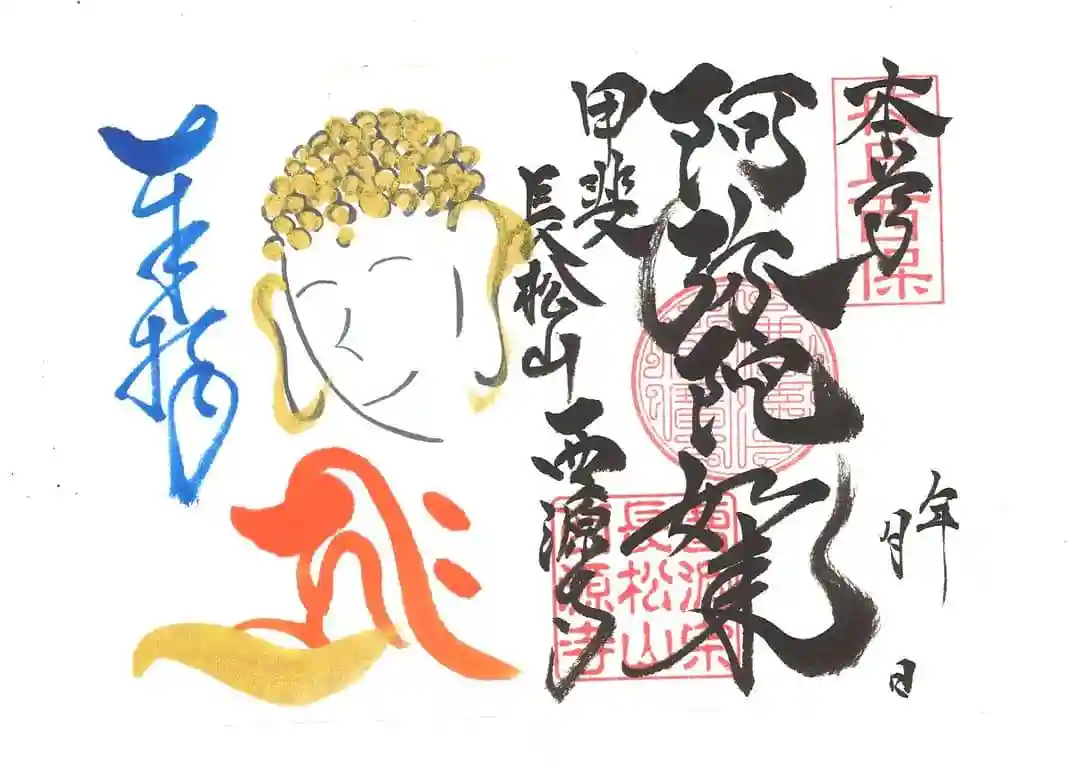 本尊
年
月
日
阿弥陀如来
甲斐
長松山
西源寺
曹洞宗
長松山
西源寺
奉拝